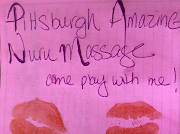 Pittsburgh Amazing
Nuru Massage
come play with me!